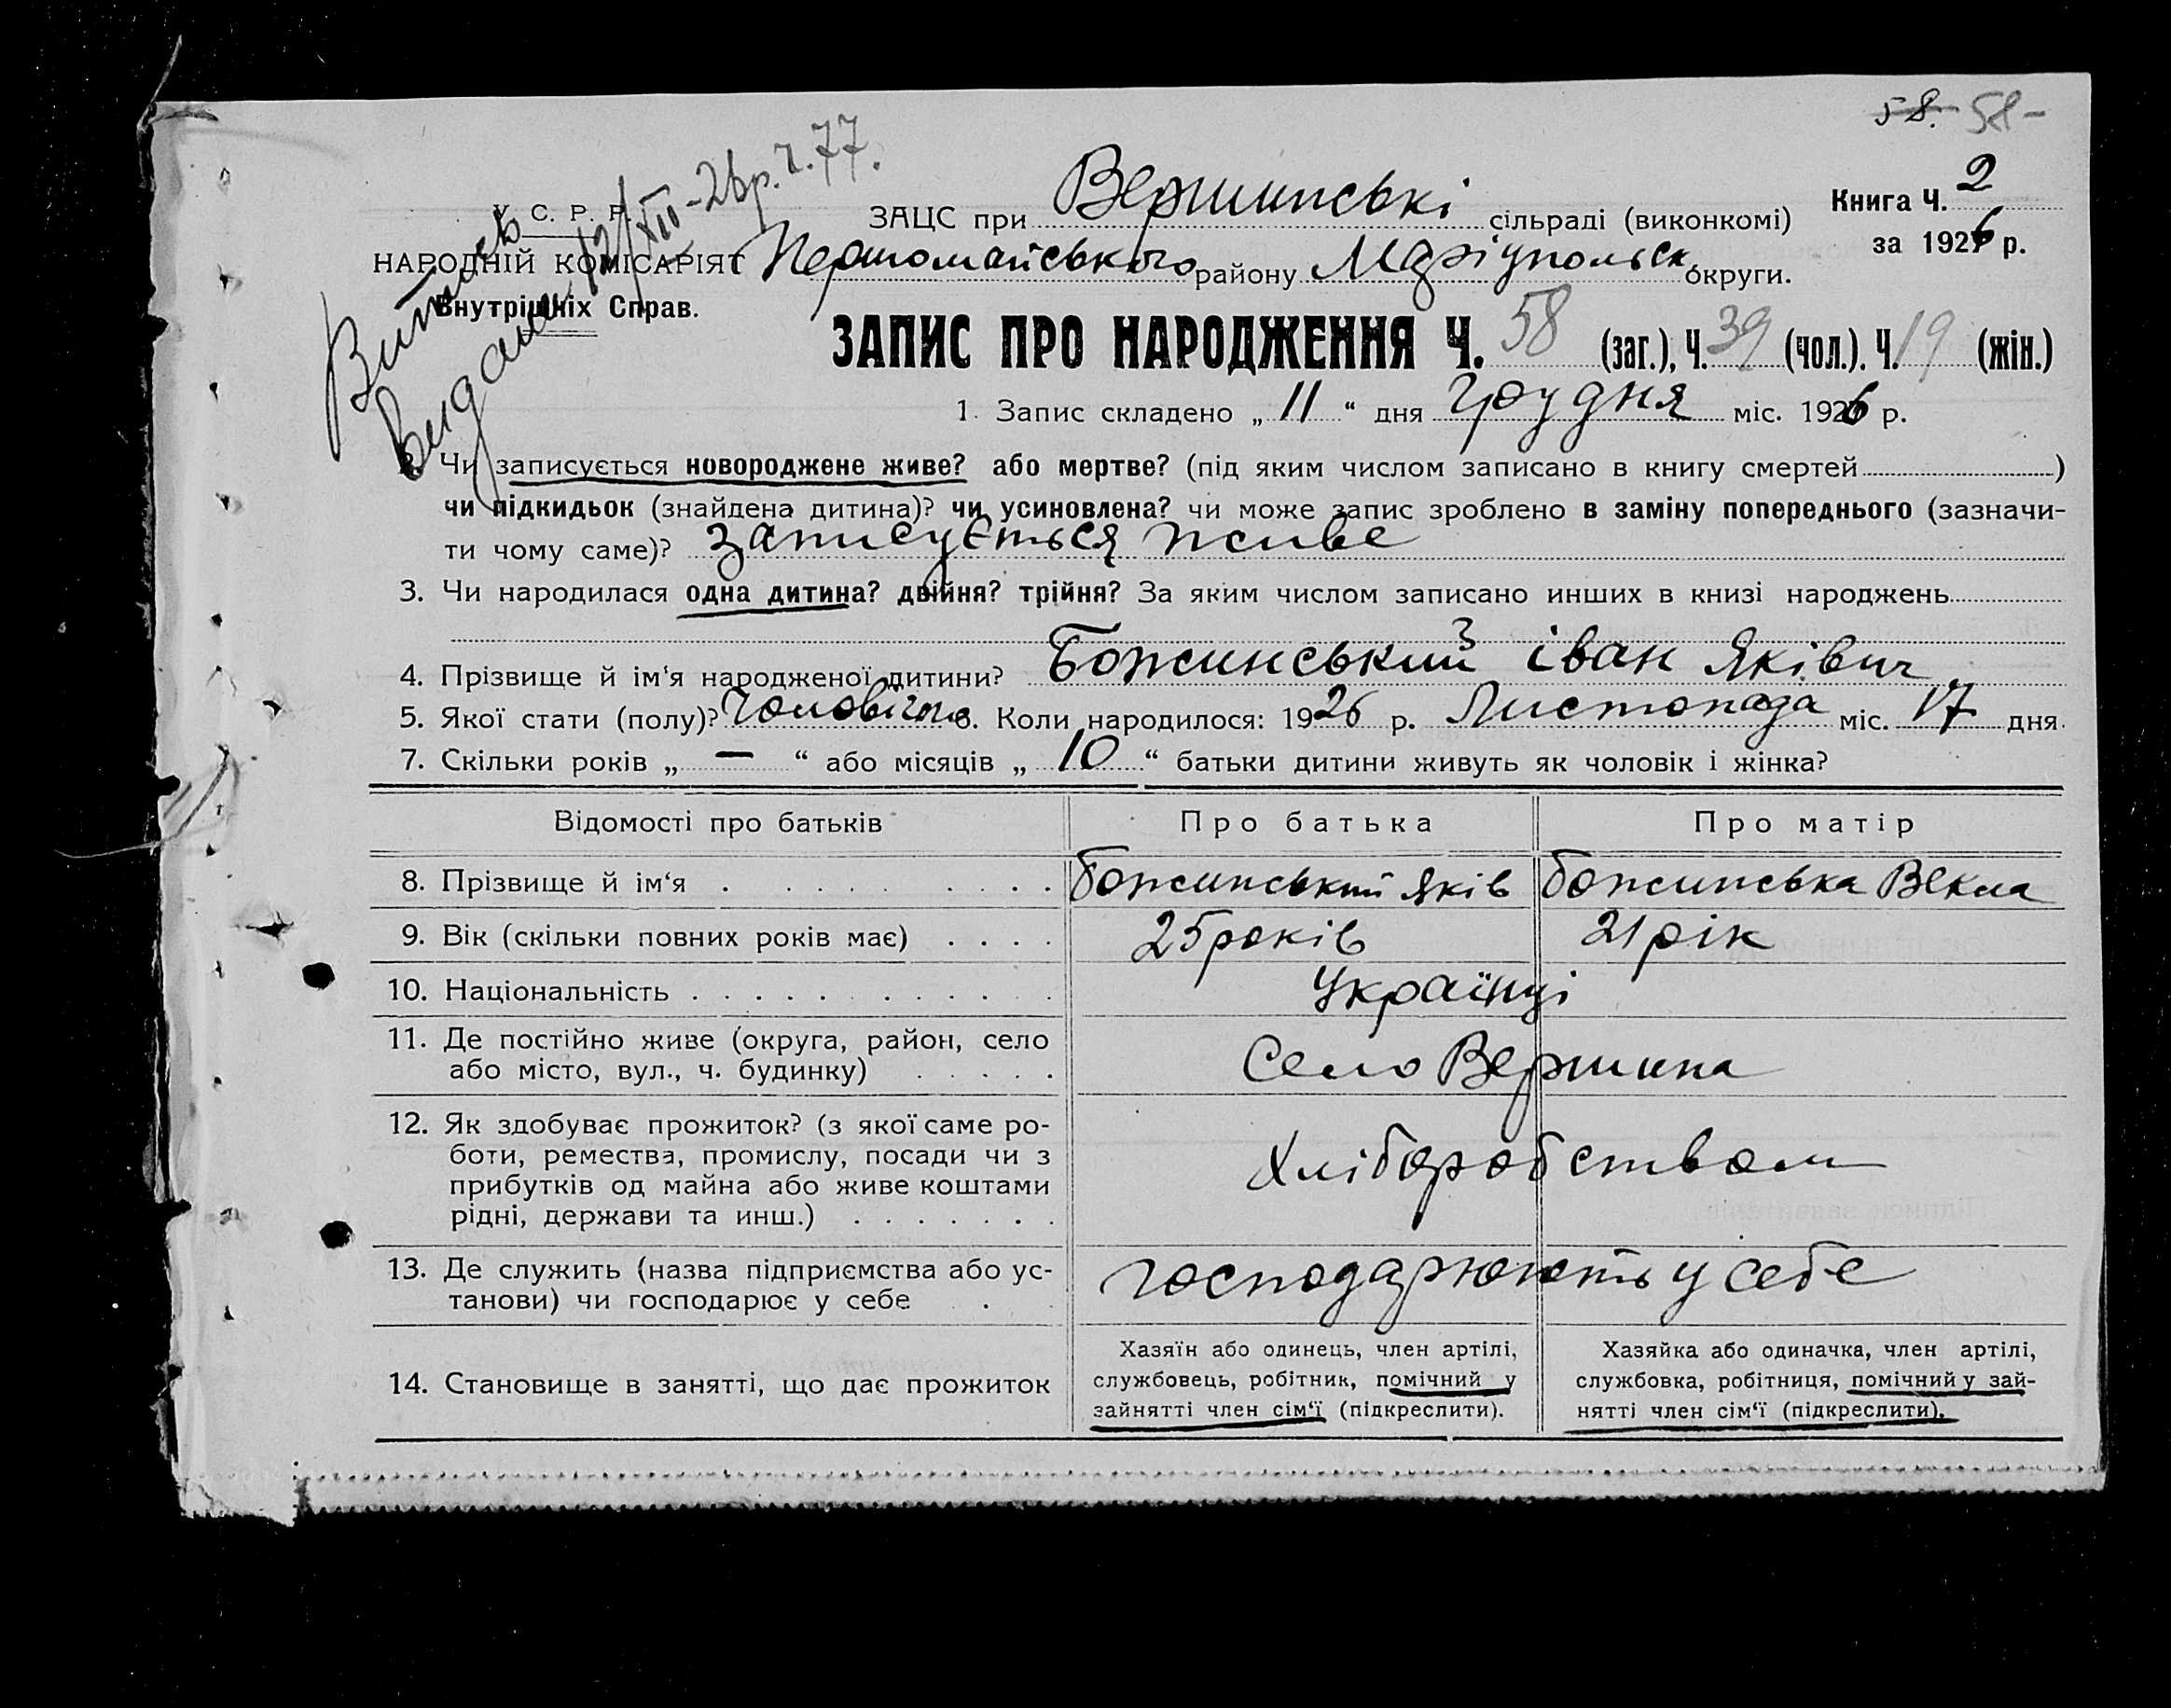 58. 58-
Витягъ
Видано 12/XII-26р. Ч. 77.
У. С. Р. Р.
НАРОДНІЙ КОМІСАРІЯТ
Внутрішніх Справ.
ЗАЦС при Вершинські сільраді (виконкомі)
Книга Ч. 2
Першомайського району Маріупольск округи.
за 1926 р.
ЗАПИС ПРО НАРОДЖЕННЯ Ч. 58 (заг.), Ч. 39 (чол.). Ч. 19 (жін.)
1. Запис складено „ 11 “ дня Грудня міс. 1926 р.
2. Чи записується новороджене живе? або мертве? (під яким числом записано в книгу смертей )
чи підкидьок (знайдена дитина)? чи усиновлена? чи може запис зроблено в заміну попереднього (зазначи-
ти чому саме)? записується живе
3. Чи народилася одна дитина? двійня? трійня? За яким числом записано инших в книзі народжень
4. Прізвище й ім‘я народженої дитини? Божинський іван Яківич
5. Якої стати (полу)? Чоловічого 6. Коли народилося: 1926 р. Листопада міс. 17 дня.
7. Скільки років „ — “ або місяців „ 10 “ батьки дитини живуть як чоловік і жінка?
Відомості про батьків Про батька Про матір
8. Прізвище й ім‘я Божинський Яків Божинська Векла
9. Вік (скільки повних років має) 25 років 21 рік
10. Національність Українці
11. Де постійно живе (округа, район, село
або місто, вул., ч. будинку) Село Вершина
12. Як здобуває прожиток? (з якої саме ро-
боти, ремества, промислу, посади чи з
прибутків од майна або живе коштами
рідні, держави та инш.) Хліборобством
13. Де служить (назва підприємства або ус-
танови) чи господарює у себе господарюють у себе
14. Становище в занятті, що дає прожиток
Хазяїн або одинець, член артілі,
службовець, робітник, помічний у
зайнятті член сім‘ї (підкреслити).
Хазяйка або одиначка, член артілі,
службовка, робітниця, помічний у зай-
нятті член сім‘ї (підкреслити).